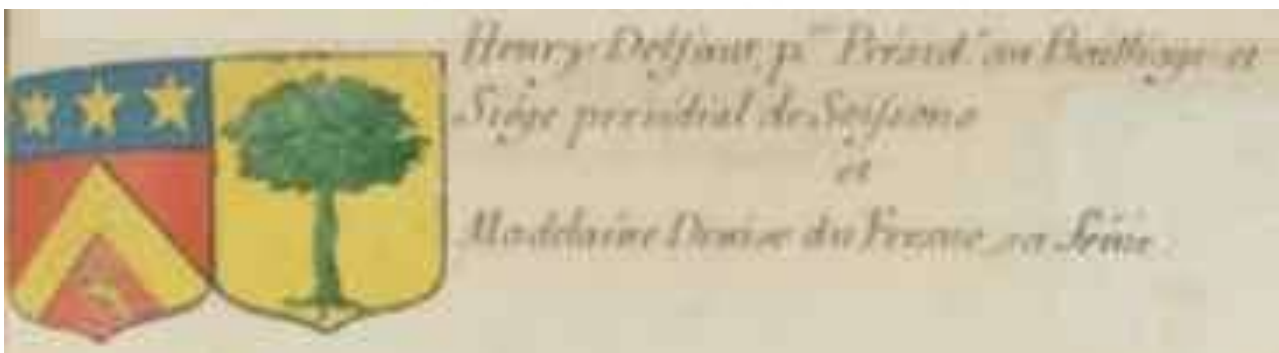 Henry Delfaut, p.er Présid.t au Bailliage et
Siége presidial de Soissons
et
Madelaine Denise du Fresne, sa fême.